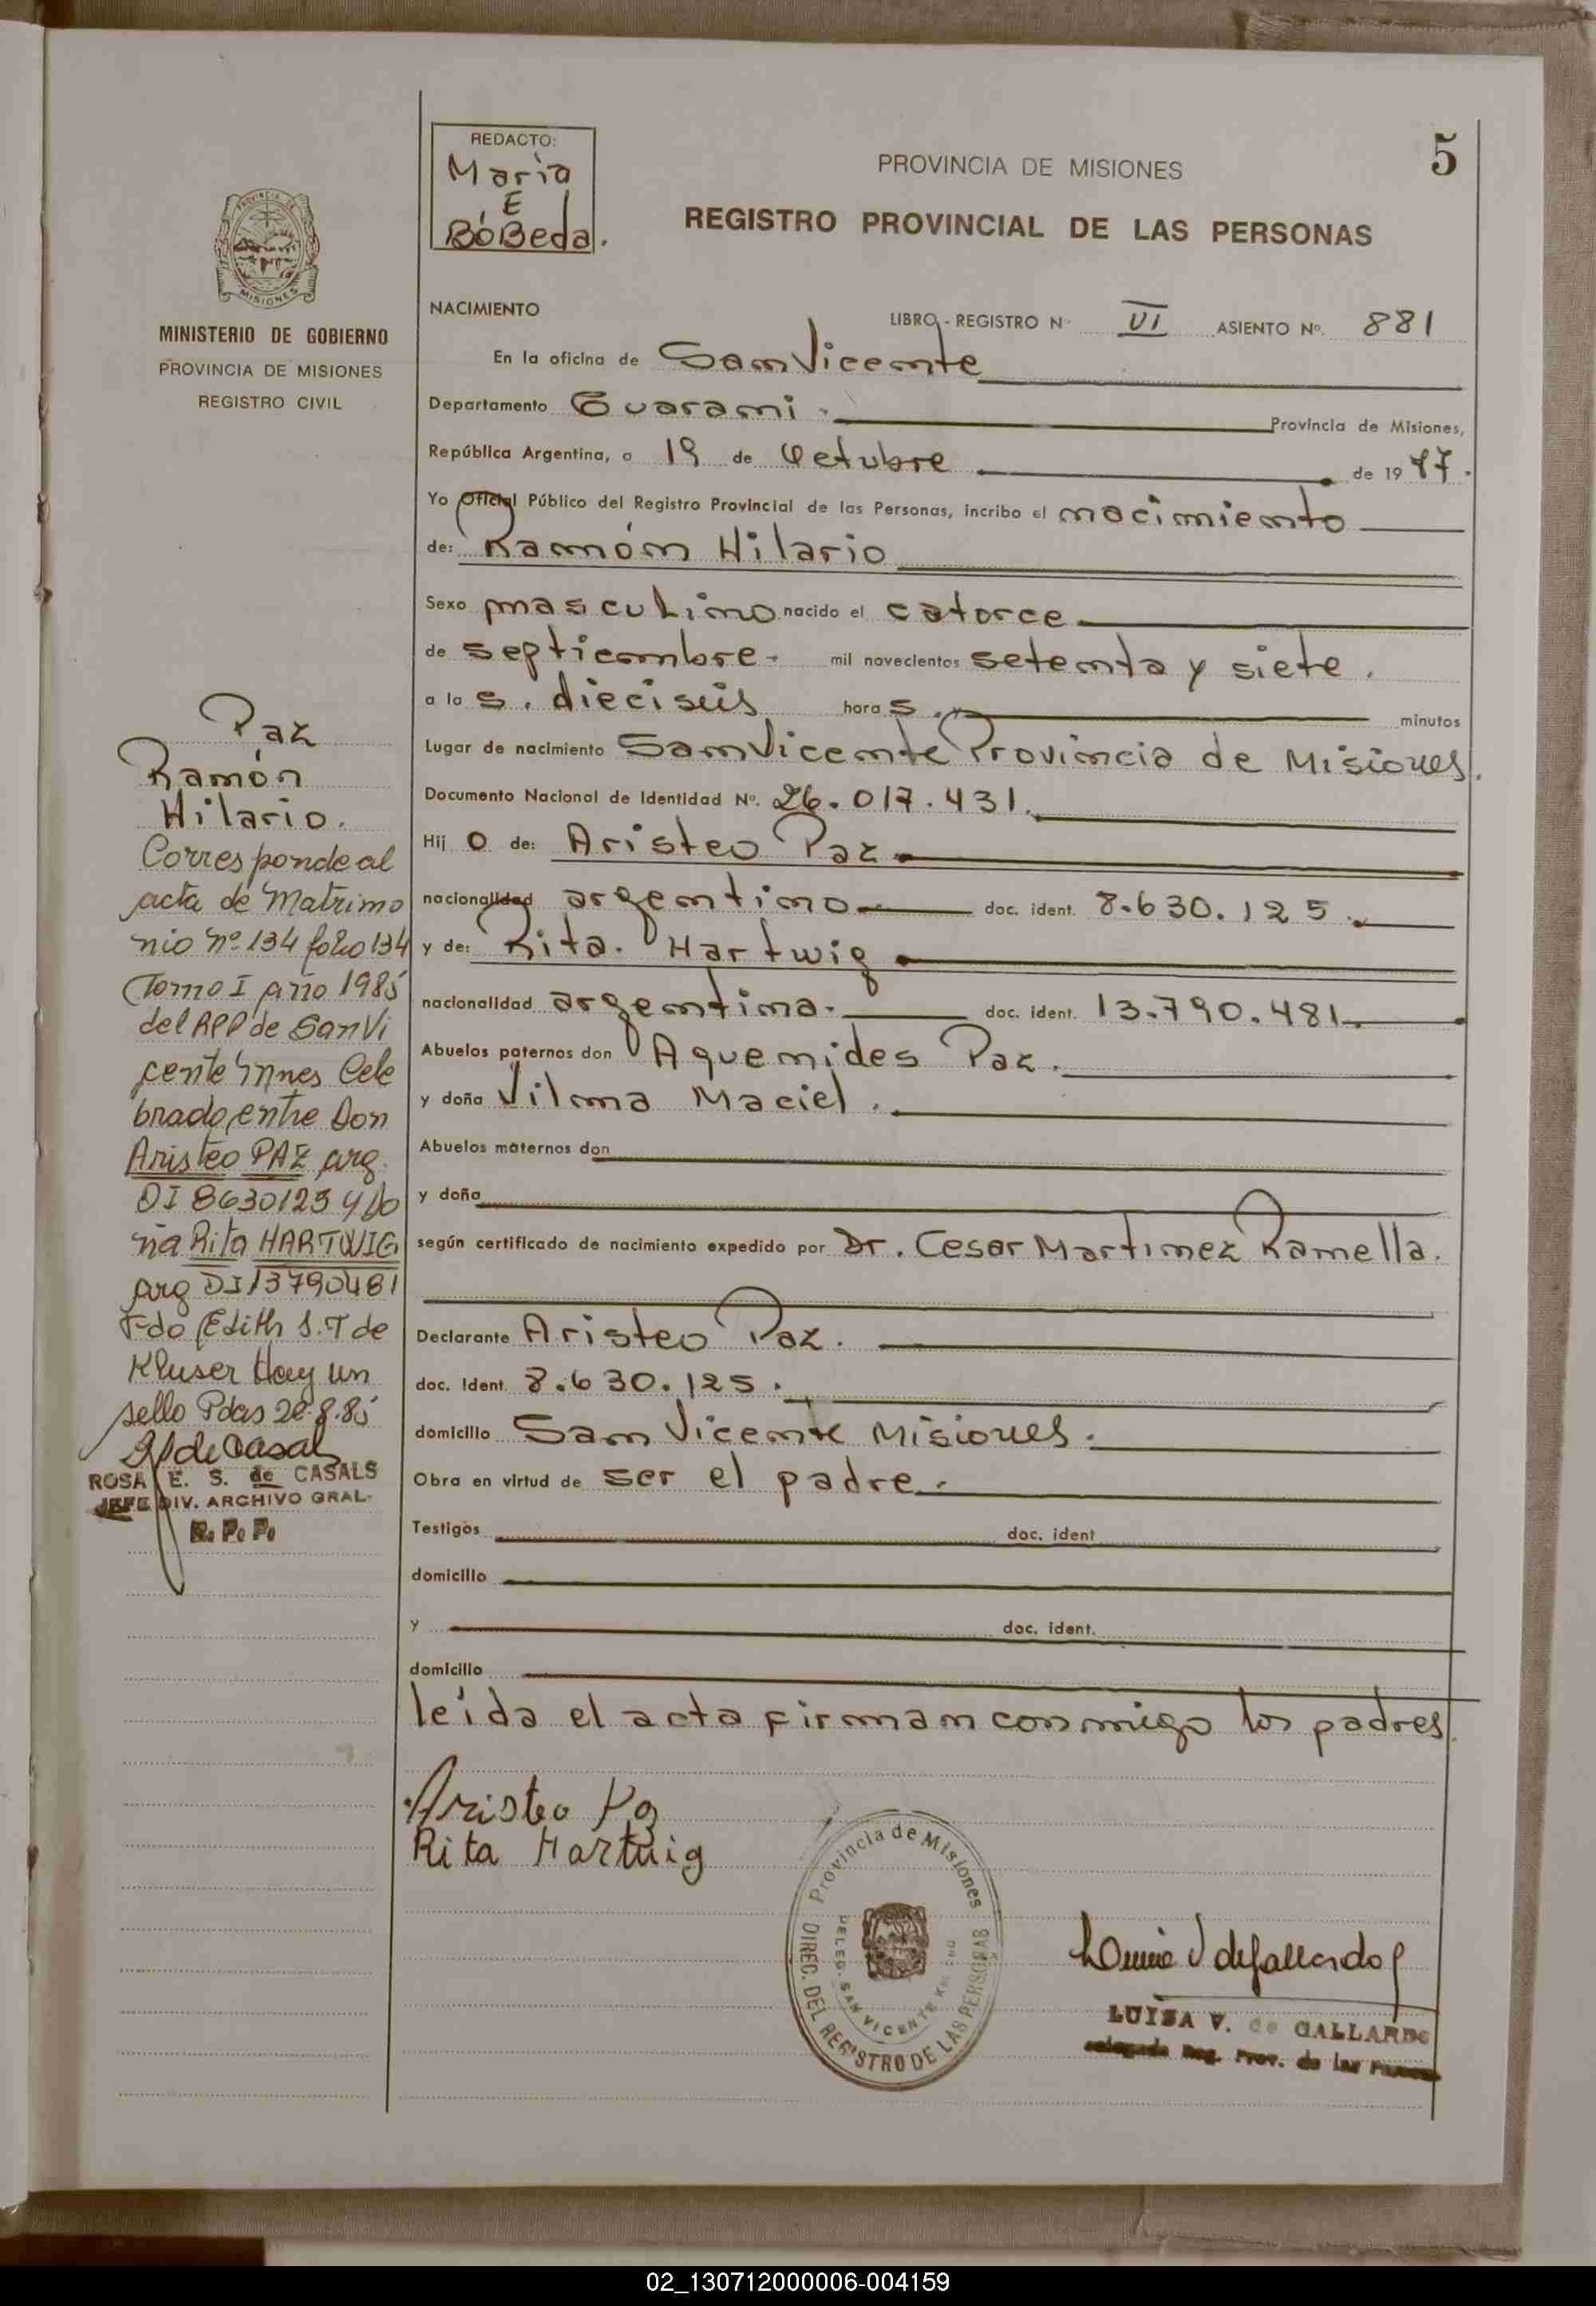 REDACTO:
Maria
E
BóBeda.
5
PROVINCIA DE MISIONES
REGISTRO PROVINCIAL DE LAS PERSONAS
PROVINCIA DE
MISIONES
MINISTERIO DE GOBIERNO
PROVINCIA DE MISIONES
REGISTRO CIVIL
NACIMIENTO
LIBRO - REGISTRO Nº VI ASIENTO Nº. 881
En la oficina de San Vicente
Departamento Guarani. Provincia de Misiones,
República Argentina, a 19 de Octubre de 1977.
Yo Oficial Público del Registro Provincial de las Personas, incribo el nacimiento
de: Ramón Hilario
Sexo masculino nacido el catorce
de septiembre. mil novecientos setenta y siete.
a las. dieciseis horas. minutos
Lugar de nacimiento San Vicente Provincia de Misiones.
Documento Nacional de Identidad Nº. 26.017.431.
Hijo de: Aristeo Paz
nacionalidad argentino doc. ident. 8.630.125.
y de: Rita. Hartwig
nacionalidad argentina. doc. ident. 13.790.481.
Abuelos paternos don Aquemides Paz.
y doña Vilma Maciel.
Abuelos maternos don
y doña
según certificado de nacimiento expedido por Dr. Cesar Martinez Ramella.
Declarante Aristeo Paz.
doc. Ident. 8.630.125.
domicilio San Vicente Misiones.
Obra en virtud de ser el padre.
Testigos doc. ident
domicilio
y doc. ident.
domicilio
leída el acta firman conmigo los padres.
Aristeo
Rita Hartwig
Paz
Ramón
Hilario.
Corresponde al
acta de Matrimo
nio nº 134 folio 134
Tomo I año 1985
del RPP de San Vi
cente Mnes Cele
brado entre Don
Aristeo PAZ arg.
DI 8630125 y Do
ña Rita HARTWIG
arg DI 13790481
Fdo Edith S. T de
Kluser Hay un
sello Pdas 8.85
de Casals
ROSA E. S. de CASALS
JEFE DIV. ARCHIVO GRAL.
R. P. P.
Provincia de Misiones
DIREC. DEL REGISTRO DE LAS PERSONAS
DELEG. SAN VICENTE
de Gallardo
LUISA V. de GALLARDO
Delegada Reg. Prov. de las Personas
02_130712000006-004159